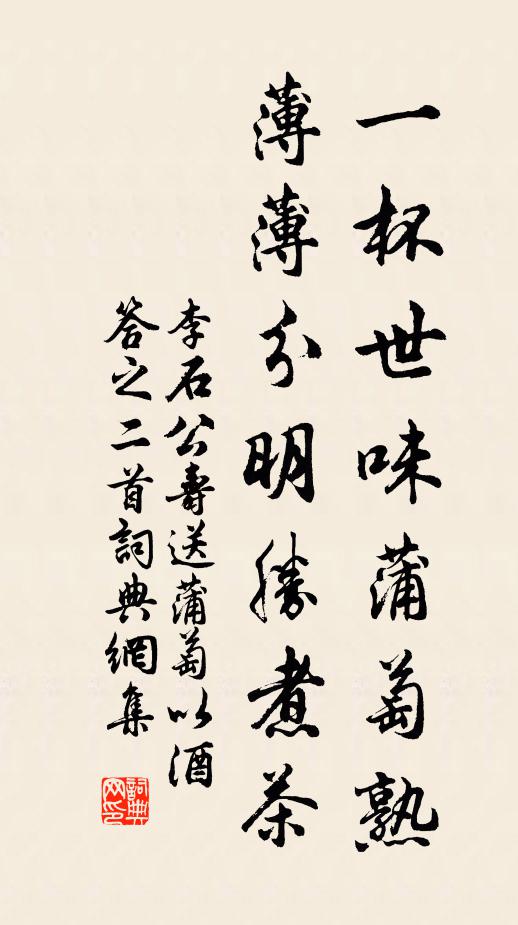 一杯世味蒲萄熟
薄薄分明勝煮茶
李石公壽送蒲萄以酒
答之二首詞典網集
詞典
网印